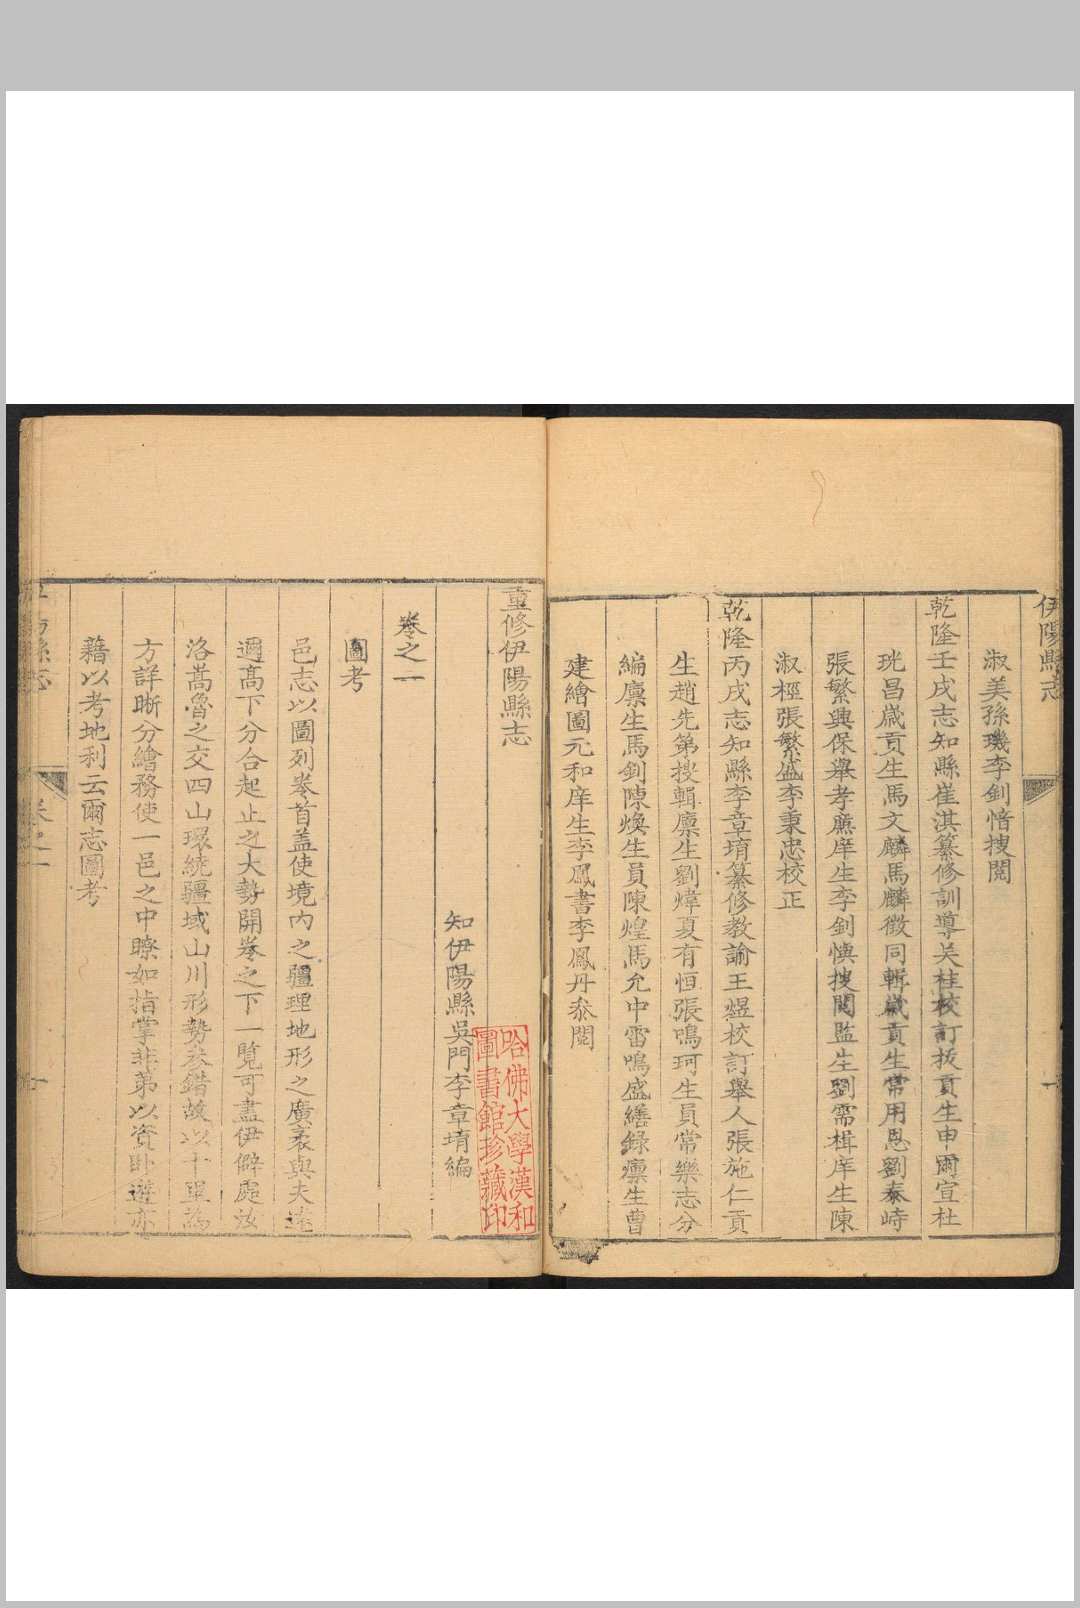 伊陽縣志
淑美孫璣李釗愔搜閱
乾隆壬戌志知縣崔淇纂修訓導关桂校訂拔貢生申爾宣杜
珖昌歲貢生馬文麟馬麟徵同輯歲貢生常用恩劉泰峙
張繁興保舉孝廉庠生李釗慎搜閱監生劉需楫庠生陳
淑樫張繁盛李秉忠校正
乾隆丙戌志知縣李章堉纂修教諭王煜校訂舉人張施仁貢
生趙先第搜輯廪生劉煒夏有恒張鳴珂生員常樂志分
編廪生馬釗陳煥生員陳煌馬允中雷鳴盛繕錄廪生曹
建繪圖元和庠生李鳳書李鳳丹叅閱
重修伊陽縣志
知伊陽縣吳門李章堉編
卷之二
圖考
邑志以圖列卷首盖使境内之疆理地形之廣袤與夫逺
邇髙下分合起止之大勢開卷之下一覧可盡伊僻處汝
洛嵩魯之交四山環繞疆域山川形勢叅錯故以十里為
方詳晰分繪務使一邑之中瞭如指掌非第以資卧遊亦
藉以考地利云爾志圖考
縣志
卷之二
哈佛大學漢和
圖書館珍藏印